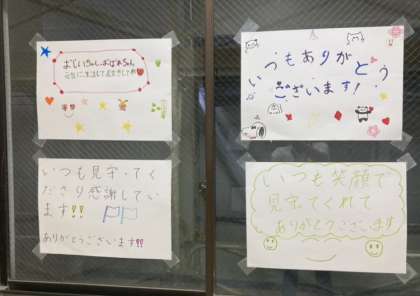 おじいちゃん、おばあちゃん
元気に生活して長生きしてね
いつもありがとう
ございます!
いつも見守ってく
ださり感謝してい
ます!!
ありがとうございます!!
いつも笑顔で
見守ってくれて
ありがとうございます